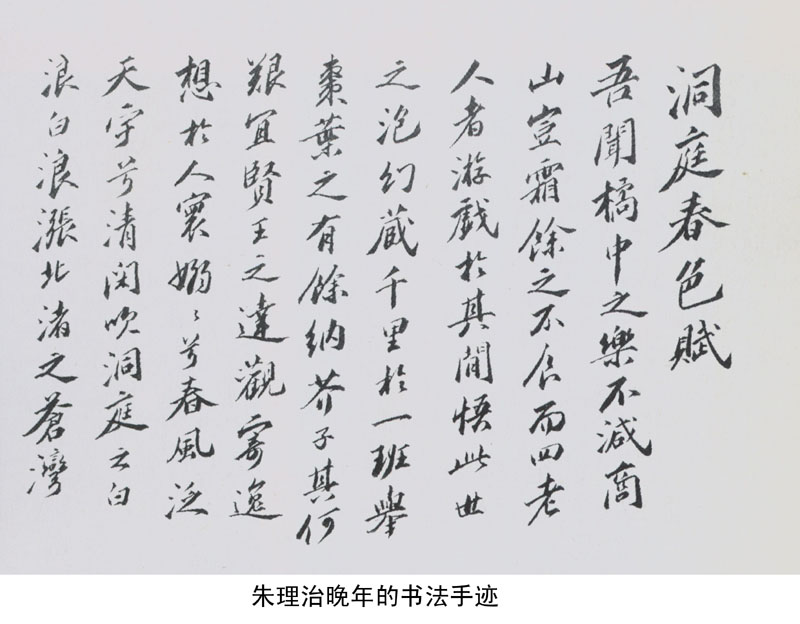 洞庭春色賦
吾聞橘中之樂不減商
山豈霜餘之不食而四老
人者游戲於其間悟此世
之泡幻藏千里於一班舉
棗葉之有餘納芥子其何
艱宜賢王之達觀寄逸
想於人寰嫋〻兮春風泛
天宇兮清闲吹洞庭之白
浪白浪漲北渚之蒼灣
朱理治晚年的书法手迹